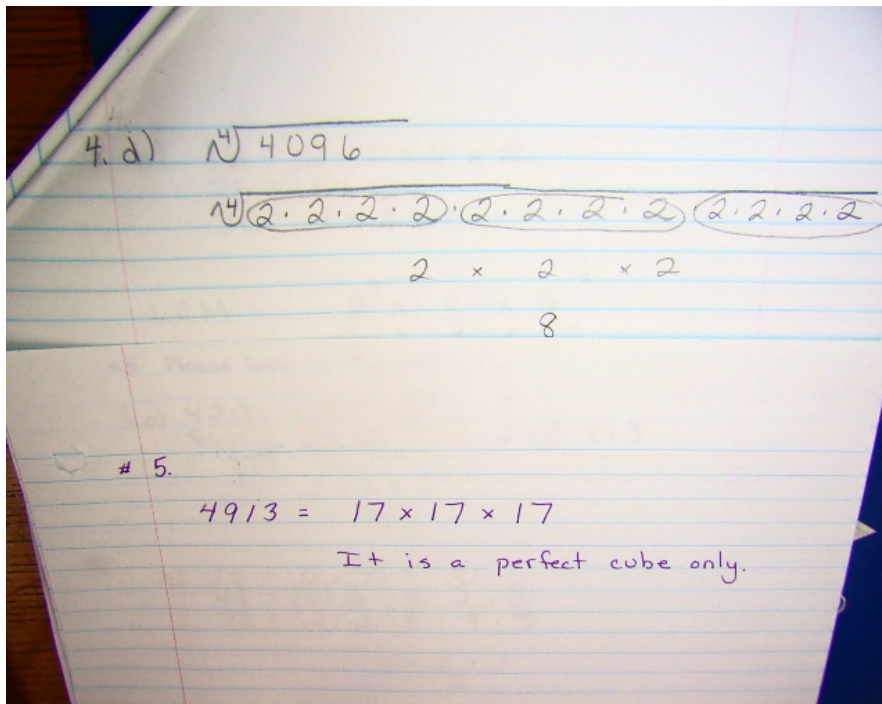 4. d) ∜4096
∜2·2·2·2·2·2·2·2 2·2·2·2
2 × 2 × 2
8
# 5.
4913 = 17 × 17 × 17
It is a perfect cube only.